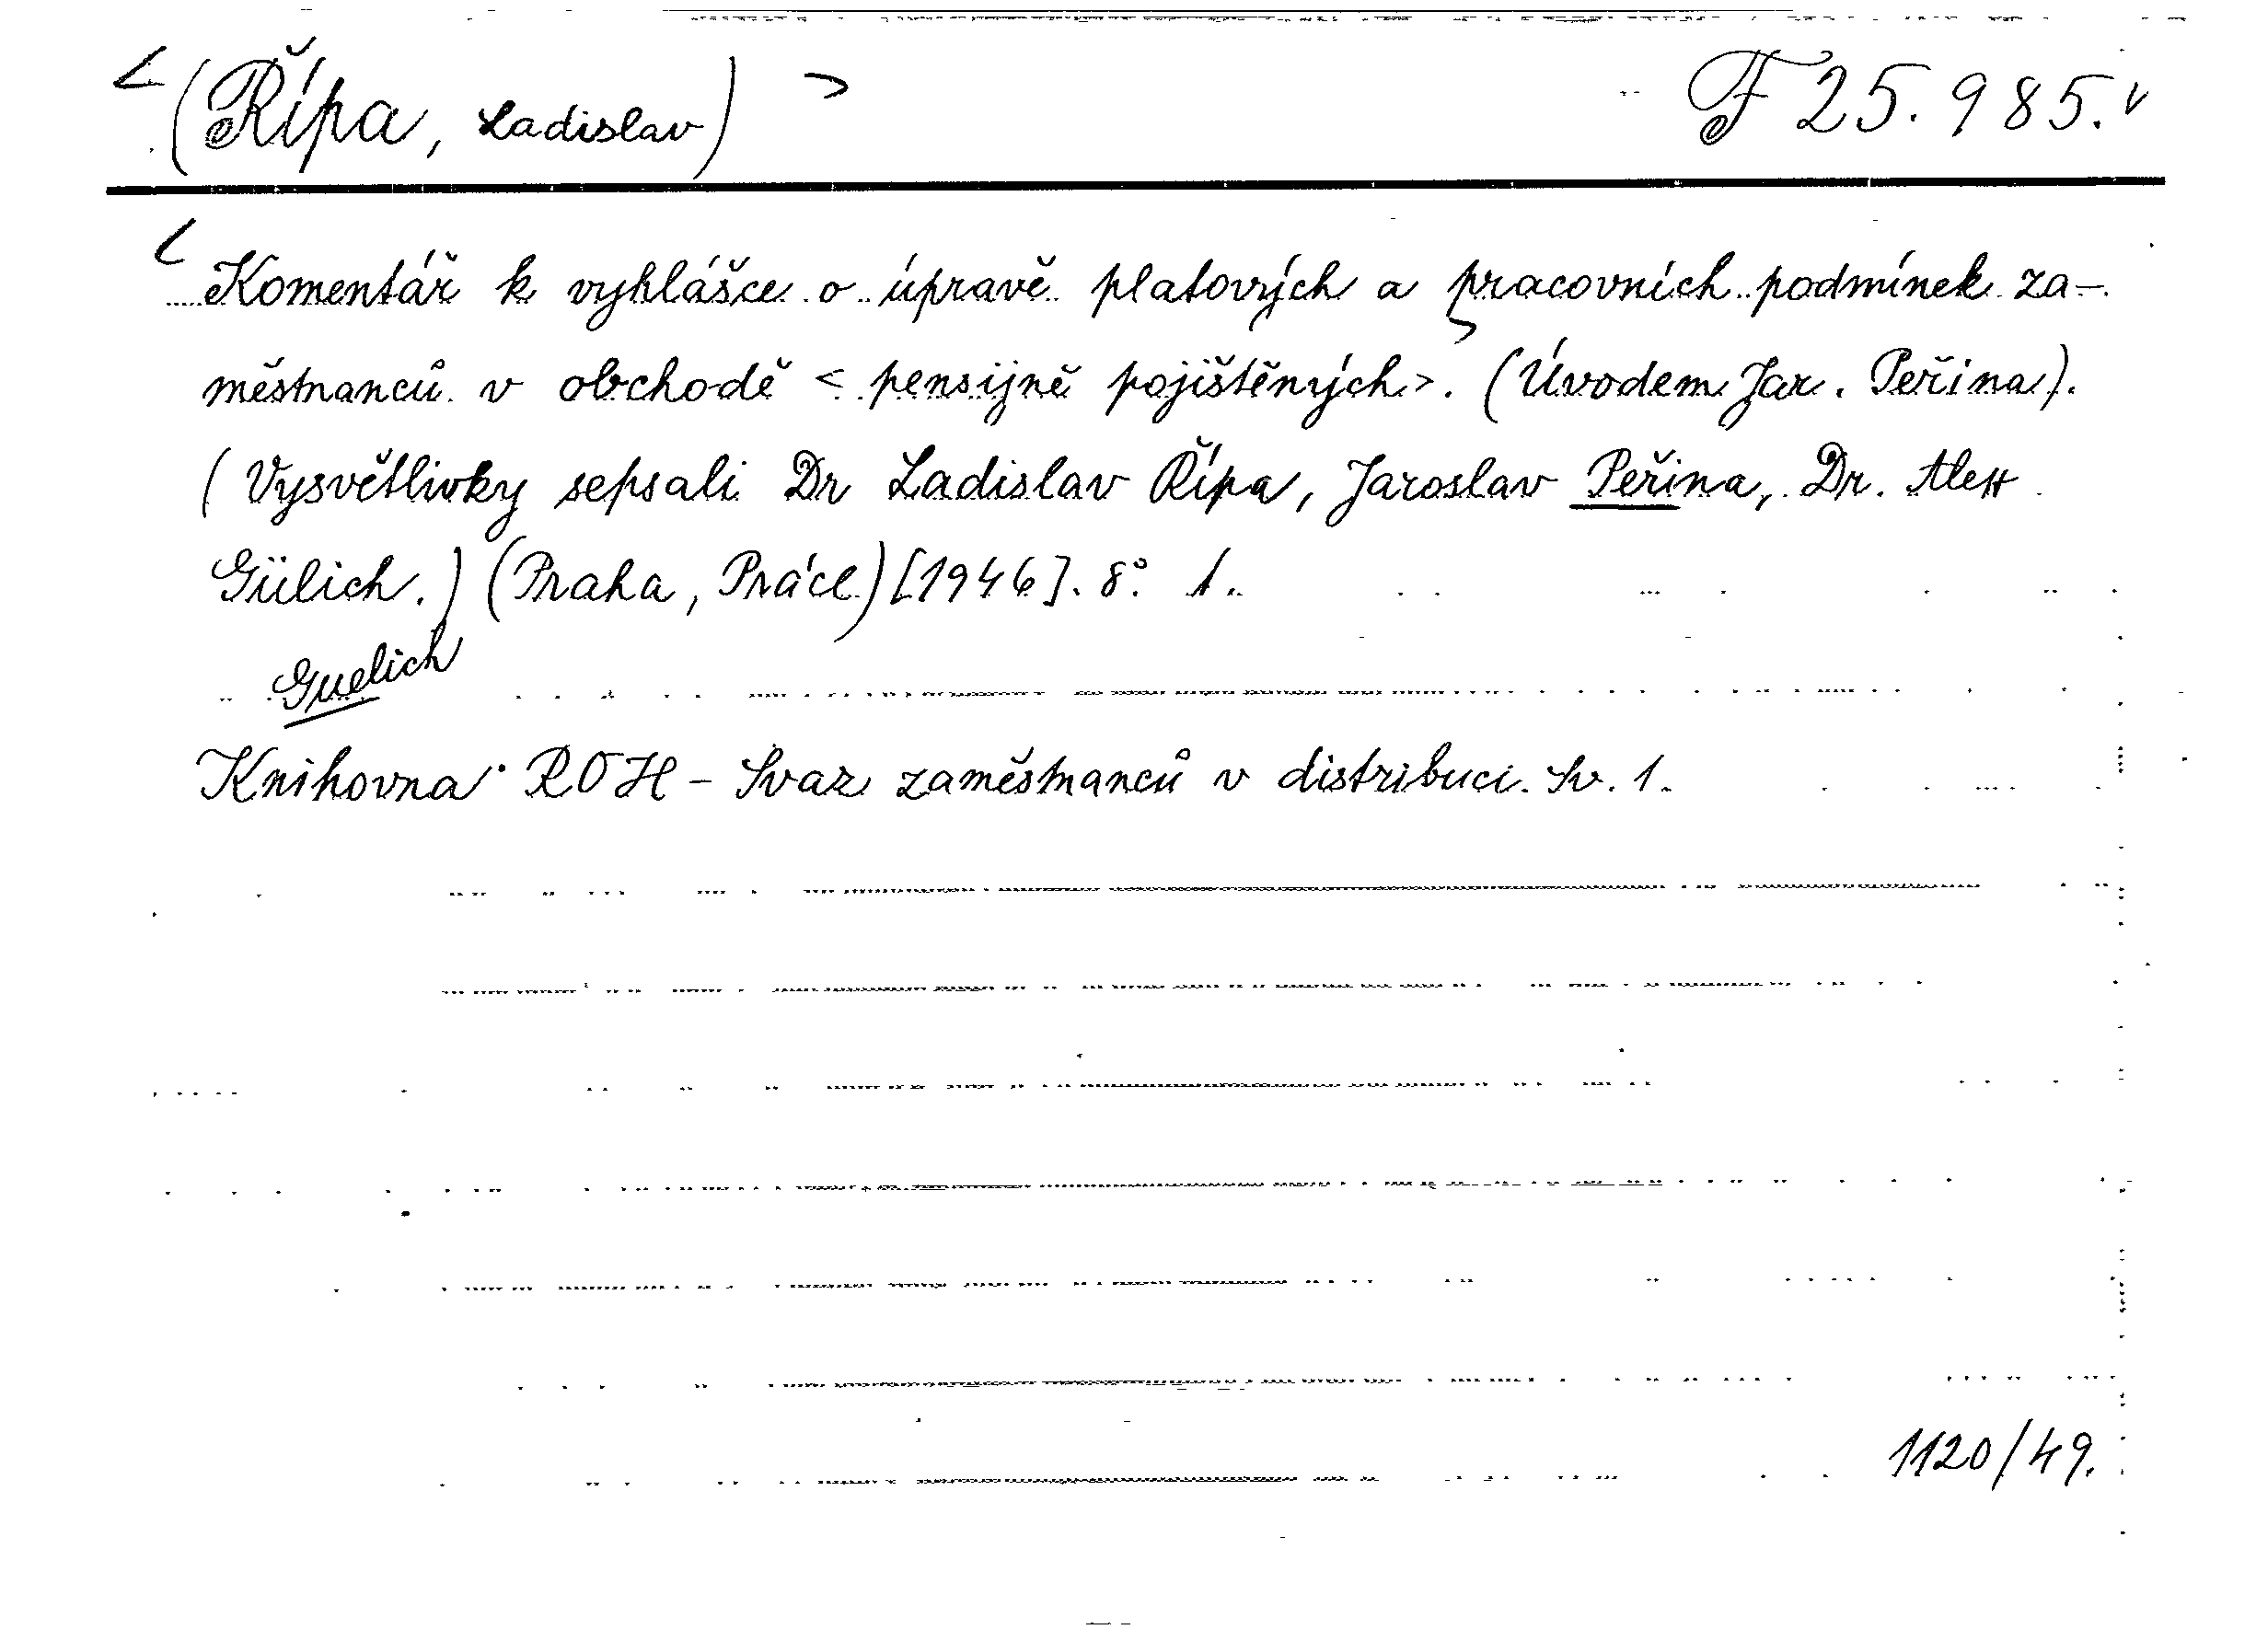 <(Řípa, Ladislav)> F 25.985.v
<Komentář k vyhlášce o úpravě platových a pracovních podmínek za-
městnanců v obchodě <pensijně pojištěných>. (Úvodem Jar. Peřina).
(Vysvětlivky sepsali Dr Ladislav Řípa, Jaroslav Peřina, Dr.
Gülich.) (Praha, Práce) [1946]. 8° 1.
Guelich
Knihovna ROH - Svaz zaměstnanců v distribuci. Sv. 1.
1120/49.